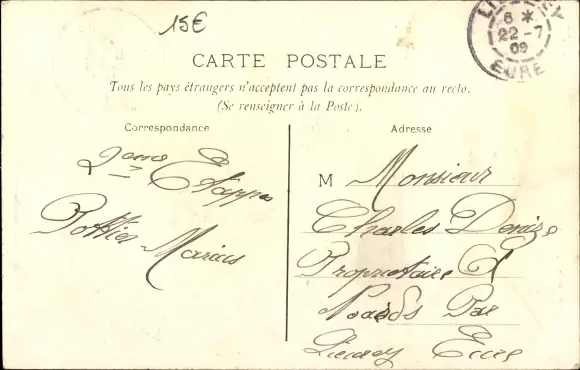 15€
LIEUREY
6 *
22 - 7
09
EURE
CARTE POSTALE
Tous les pays étrangers n'acceptent pas la correspondance au recto.
(Se renseigner à la Poste).
Correspondance
2eme Etappe
Pottier Marius
Adresse
M Monsieur
Charles Denize
Propriétaire A
Noards Par
Lieurey Eure